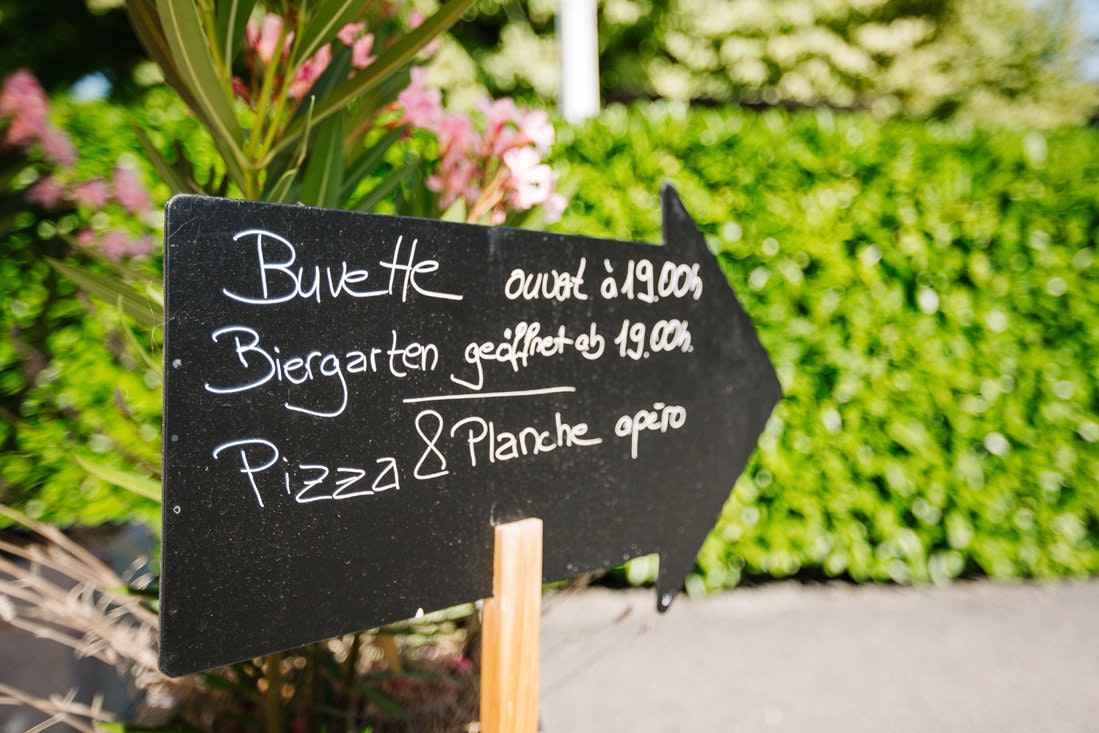 Buvette ouvert à 19.00h
Biergarten geöffnet ab 19.00h.
Pizza & Planche apéro